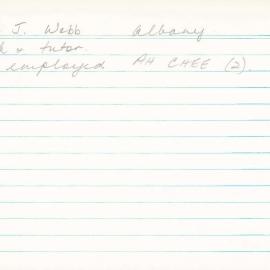 J. Webb Albany
& tutor.
employed AH CHEE (2).